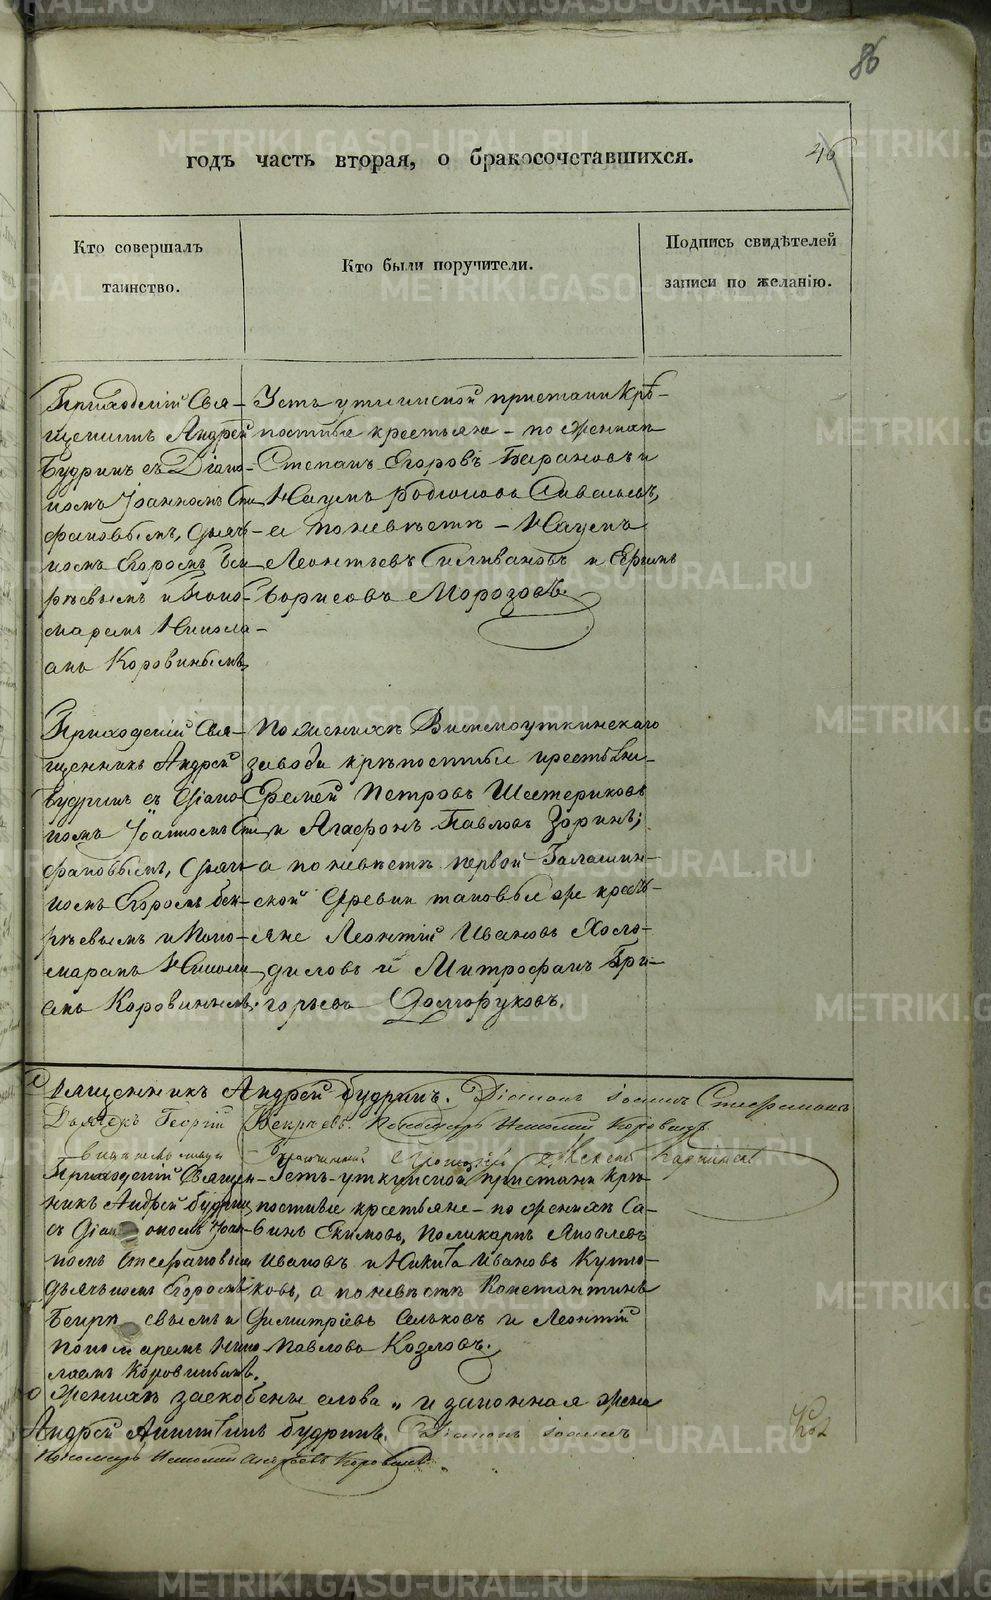 86
годъ часть вторая, о бракосочетавшихся.
46
Кто совершалъ
таинство.
Кто были поручители.
Подпись свидѣтелей
записи по желанію.
Приходскій Свя-
щенникъ Андрей
Будринъ съ Діако-
номъ Іоанномъ Сте
фановымъ, Дьяч-
комъ Егоромъ Бек
рѣевымъ и Поно-
маремъ Никола-
емъ Коровинымъ
Усть уткинской пристани Крѣ-
постные крестьяне - по женихѣ
Степанъ Егоровъ Барановъ и
Наумъ Родионовъ
а по невѣстѣ - Наумъ
Леонтьевъ Силивановъ и Ефимъ
Борисовъ Морозовъ.
Приходскій Свя-
щенникъ Андрей
Будринъ съ Діако
номъ Іоанномъ Сте
фановымъ, Дьяч
комъ Егоромъ Бек-
рѣевымъ и Поно-
маремъ Никола
емъ Коровинымъ.
По женихѣ Висимоуткинскаго
завода крѣпостные крестьяне
Еремей Петровъ Шестериковъ
и Агафонъ Павловъ Зоринъ;
а по невѣстѣ первой Галашин-
ской Деревни таковые же кресть-
яне Леонтій Ивановъ Холо-
диловъ и Митрофанъ Гри-
горьевъ Долгоруковъ.
Священникъ Андрей Будринъ. Діаконъ Іоаннъ Стефановъ
Дьячекъ Георгій Бекрѣевъ. Пономарь Николай Коровинъ
Приходскій Священ-
никъ Андрей Будринъ
съ Діакономъ Іоан-
номъ Стефановымъ
Дьячкомъ Егоромъ
Бекрѣевымъ и
Пономаремъ Нико
лаемъ Коровинымъ.
Усть-уткинской пристани крѣ-
постные крестьяне - по женихѣ Са-
винъ Екимовъ, Поликарпъ Яковлевъ
Ивановъ и Никита Ивановъ Кутю-
ковъ, а по невѣстѣ Константинъ
Димитріевъ Сельковъ и Леонтій
Павловъ Козловъ.
О женихѣ заскоблены слова „и законная жена
Андрей Будринъ. Діаконъ Іоаннъ
Пономарь Николай Коровинъ
METRIKI.GASO-URAL.RU